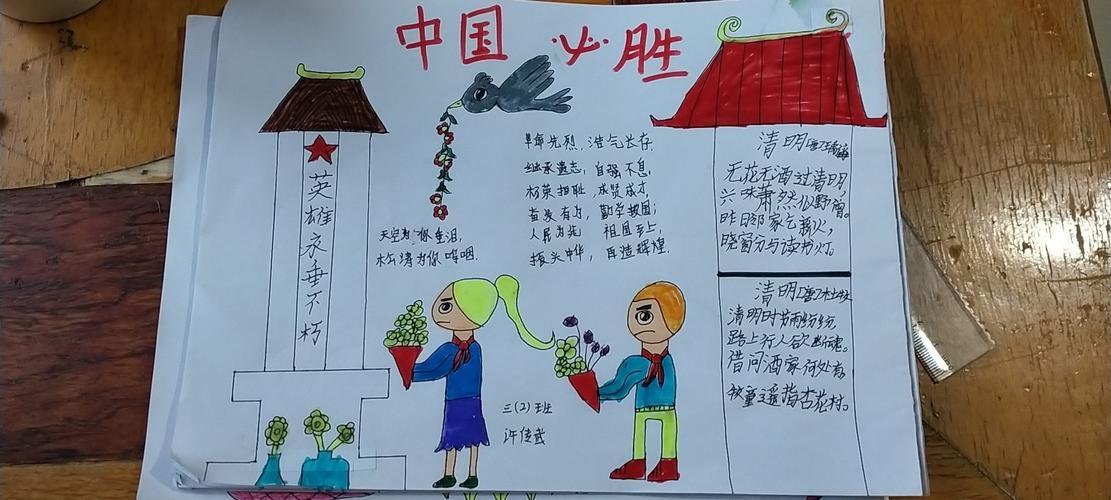 中国 必胜
英雄永垂不朽
天空为你垂泪,
松涛为你哽咽.
革命先烈, 浩气长存.
继承遗志, 自强不息,
材荣知耻, 成贤成才,
奋发有为, 勤学救国;
人民为先 祖国至上,
振兴中华, 再造辉煌.
三(2)班
许佳
清明
无花无酒过清明,
兴味萧然似野僧。
昨日邻家乞薪火,
晓窗分与读书灯。
清明[唐]杜牧
清明时节雨纷纷,
路上行人欲断魂。
借问酒家何处有,
牧童遥指杏花村。